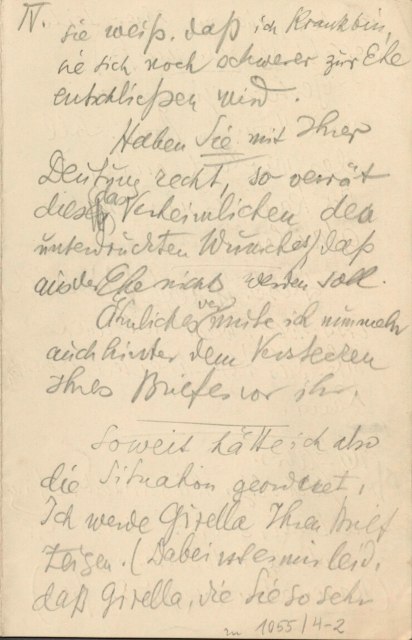 IV.
sie weiß, daß ich Krank bin,
sie sich noch schwerer zur Ehe
entschließen wird.
Haben Sie mit Ihrer
Deutung recht, so verrät
dieses das Verheimlichen den
unterdrückten Wunsch, daß
aus der Ehe nichts werden soll.
Ähnliches vermute ich nunmehr
auch hinter dem Verstecken
Ihres Briefes vor ihr.
Soweit hätte ich also
die Situation geordnet,
Ich werde Gizella Ihren Brief
zeigen. (Dabei ist es mir leid,
daß Gizella, die Sie so sehr
1055/4-2